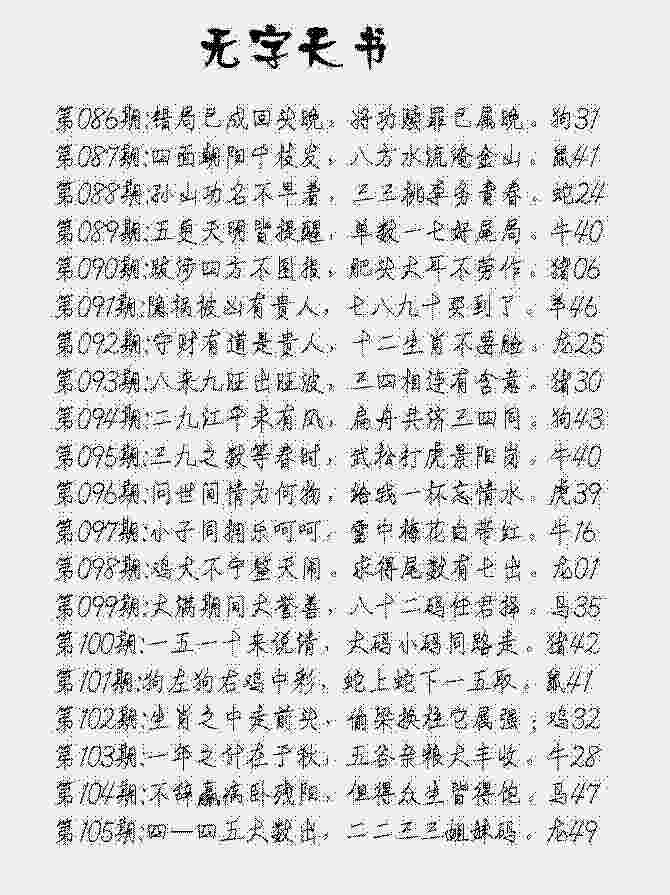 无字天书
第086期:错局已成回头晚。将功赎罪已属晚。狗31
第087期:四面朝阳宁枝发，八方水流淹金山。鼠41
第088期:孙山功名不早着，三三桃李务青春。蛇24
第089期:五更天明皆提醒，单数一七好尾局。牛40
第090期:跋涉四方不图报，肥头大耳不劳作。猪06
第091期:隐祸被凶有贵人，七八九十买到了。羊46
第092期:守财有道是贵人，十二生肖不要脸。龙25
第093期:八来九旺出旺波，三四相连有含意。猪30
第094期:二九江平来有风，扁舟共济三四同。狗43
第095期:三九之数等春时，武松打虎景阳岗。牛40
第096期:问世间情为何物，给我一杯忘情水。虎39
第097期:小子同拥乐呵呵，雪中梅花白带红。牛16
第098期:鸡犬不宁整天闹。求得尾数有七出。龙01
第099期:大满期间大誉善，八十二码任君择。马35
第100期:一五一十来说清，大码小码同路走。猪42
第101期:狗左狗右鸡中彩，蛇上蛇下一五取。鼠41
第102期:生肖之中走前头，偷梁换柱它属强；鸡32
第103期:一年之计在于秋，五谷杂粮大丰收。牛28
第104期:不辞羸病卧残阳，但得众生皆得饱。马47
第105期:四一四五大数出，二二三三姐妹码。龙49